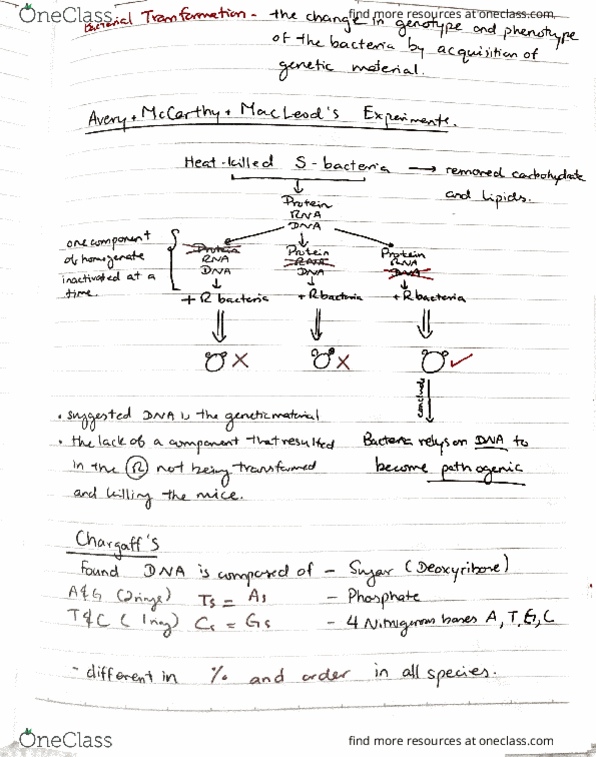 OneClass
find more resources at oneclass.com
Bacterial Transformation - the change in genotype and phenotype
of the bacteria by acquisition of
genetic material.
Avery + McCarthy + MacLeod's Experiments.
Heat-killed S-bacteria → removed carbohydrate
and Lipids.
Protein
RNA
DNA
one component
of homogenate
inactivated at a
time.
Protein
RNA
DNA
+ R bacteria
Protein
RNA
DNA
+ R bacteria
Protein
RNA
DNA
+ R bacteria
X
X
✓
conclude
• suggested DNA is the genetic material
• the lack of a component that resulted
in the R not being transformed
and killing the mice.
Bacteria relys on DNA to
become pathogenic
Chargaff's
found DNA is composed of - Sugar (Deoxyribose)
A & G (2 rings) Ts = As - Phosphate
T & C (1 ring) Cs = Gs - 4 Nitrogenous bases A, T, G, C
- different in % and order in all species.
OneClass
find more resources at oneclass.com